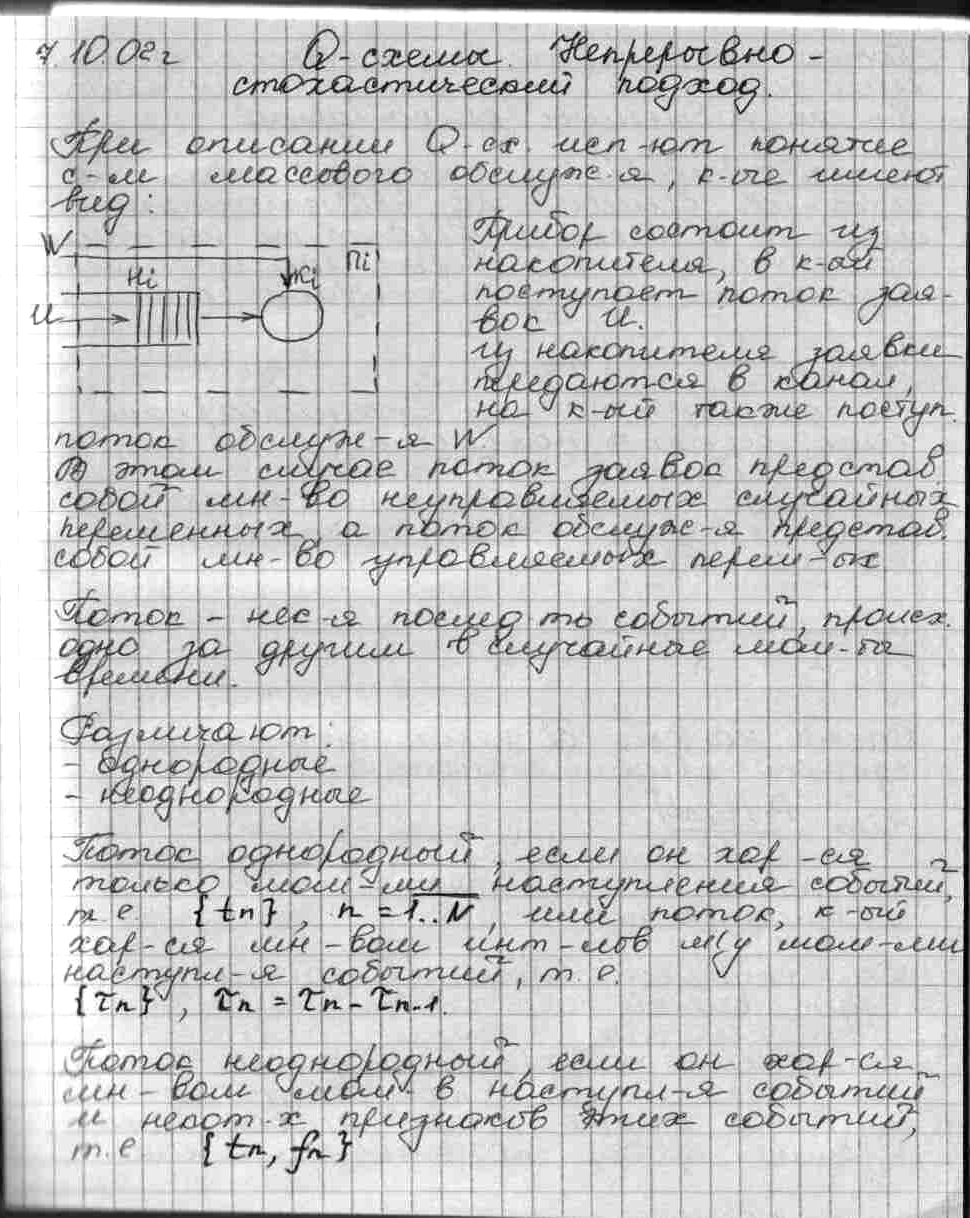 7.10.02г Q-схемы. Непрерывно-
стохастический подход.
При описании Q-сх. исп-ют понятие
с-м массового обслуж-я, к-ые имеют
вид:
W
Нi
Кi
Пi
U
Прибор состоит из
накопителя, в к-ый
поступает поток зая-
вок U.
из накопителя заявки
передаются в канал,
на к-ый также поступ.
поток обслуж-я W
В этом случае поток заявок представ.
собой мн-во неуправляемых случайных
переменных, а поток обслуж-я представ.
собой мн-во управляемых перем-ых
Поток - нек-я послед-ть событий, происх.
одно за другим в случайные мом-ты
времени.
Различают:
- однородные
- неоднородные
Поток однородный, если он хар-ся
только мом-ми наступления событий,
т.е. {tn}, n = 1..N, или поток, к-ый
хар-ся мн-вом инт-лов м/у мом-ми
наступл-я событий, т.е.
{τn}, τn = τn - τn-1.
Поток неоднородный, если он хар-ся
мн-вом мом-в наступл-я событий
и некот-х признаков этих событий,
т.е. {tn, fn}